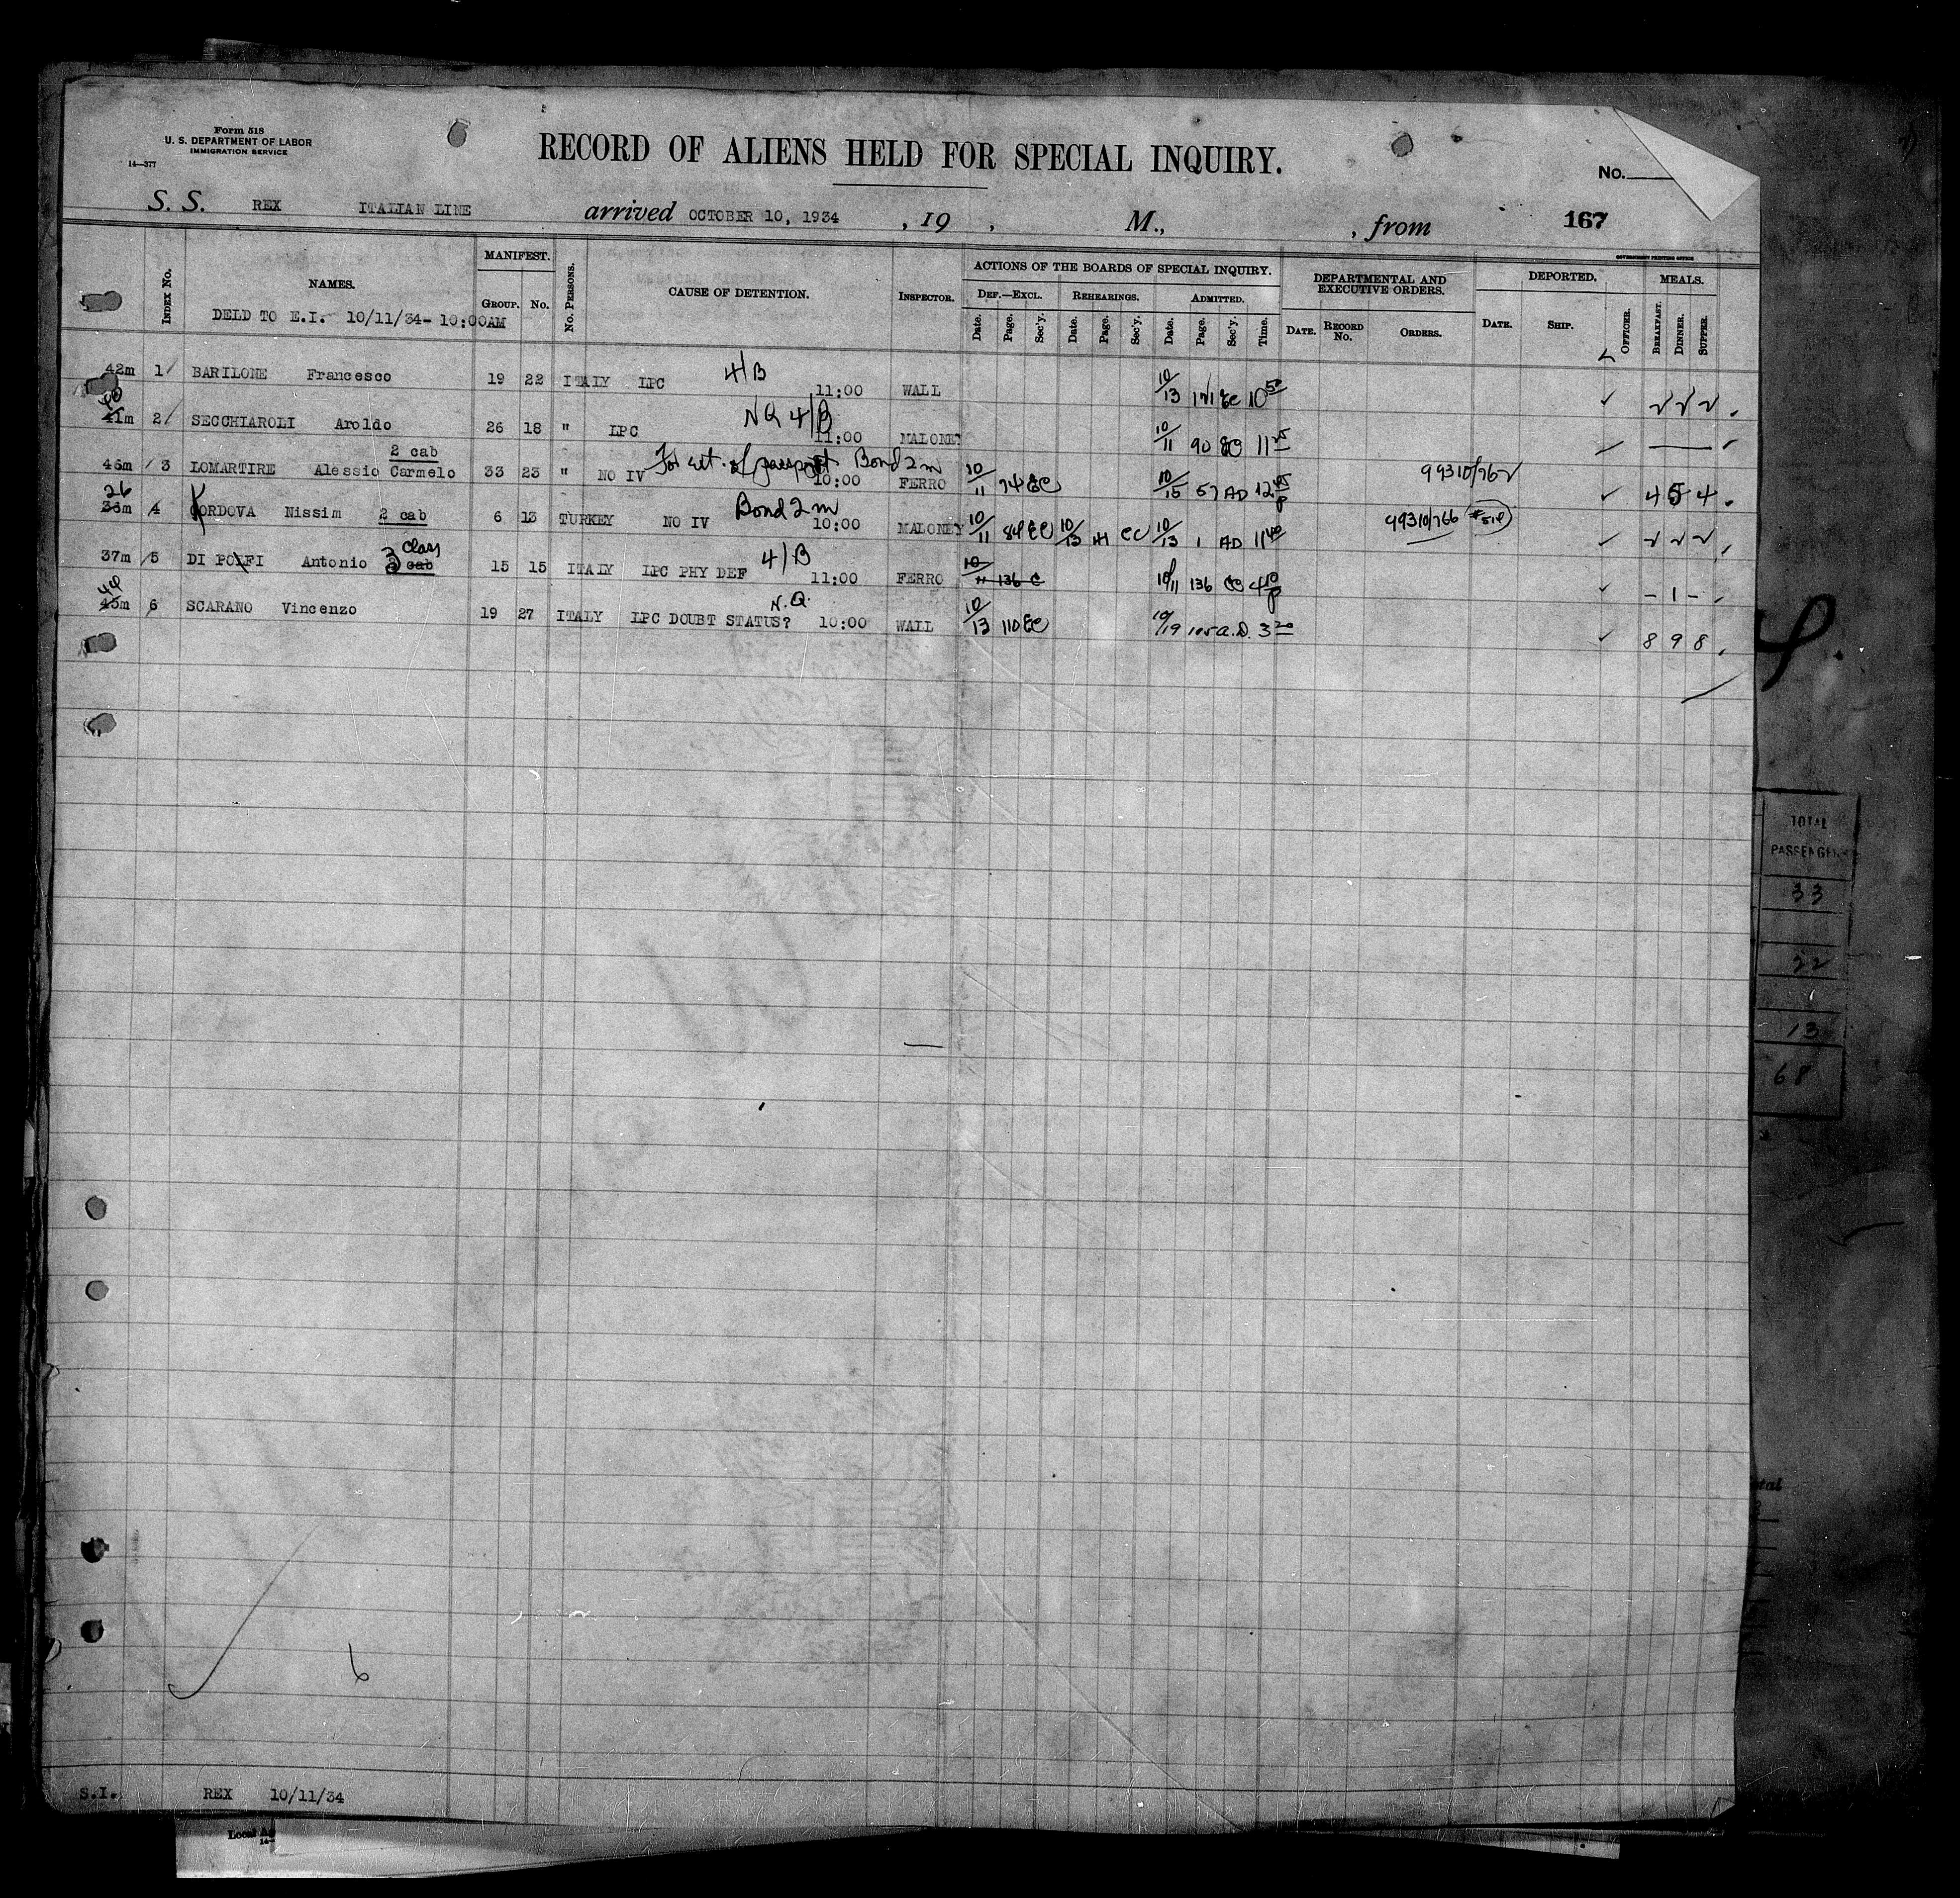 Form 518
U. S. DEPARTMENT OF LABOR
IMMIGRATION SERVICE
14—377
RECORD OF ALIENS HELD FOR SPECIAL INQUIRY.
No.
S. S. REX ITALIAN LINE arrived OCTOBER 10, 1934 , 19 , M., , from 167
GOVERNMENT PRINTING OFFICE
Index No. NAMES. MANIFEST. Group. No. No. Persons. CAUSE OF DETENTION. Inspector. ACTIONS OF THE BOARDS OF SPECIAL INQUIRY. DEPARTMENTAL AND EXECUTIVE ORDERS. DEPORTED. Officer. MEALS.
Def.—Excl. Rehearings. Admitted.
Date. Page. Sec'y. Date. Page. Sec'y. Date. Page. Sec'y. Time. Date. Record No. Orders. Date. Ship. Breakfast. Dinner. Supper.
DELD TO E.I. 10/11/34- 10:00AM
42m 1 BARILONE Francesco 19 22 ITALY LPC 4/B 11:00 WALL 10/13 EC 10 50
40 41m 2 SECCHIAROLI Aroldo 26 18 " LPC NQ 4/B 11:00 MALONEY 10/11 90 EC 11
2 cab
46m 3 LOMARTIRE Alessio Carmelo 33 23 " NO IV passport Bond 2 m 10:00 FERRO 10/11 74 EC 10/15 57 AD 12 45 p 99310/762 4 5 4
26 36m 4 KORDOVA Nissim 2 cab 6 13 TURKEY NO IV Bond 2 m 10:00 MALONEY 10/11 84 EC 10/13 EC 10/13 1 AD 11 40 99310/766
37m 5 DI POLFI Antonio 3 class cab 15 15 ITALY LPC PHY DEF 4/B 11:00 FERRO 10/11 136 C 10/11 136 4 10 p - 1 -
44 45m 6 SCARANO Vincenzo 19 27 ITALY LPC DOUBT STATUS? N.Q. 10:00 WALL 10/13 110 EC 10/19 105 A.D. 3 20 8 9 8
TOTAL
PASSENGER
33
22
13
68
6
S.I. REX 10/11/34
Local